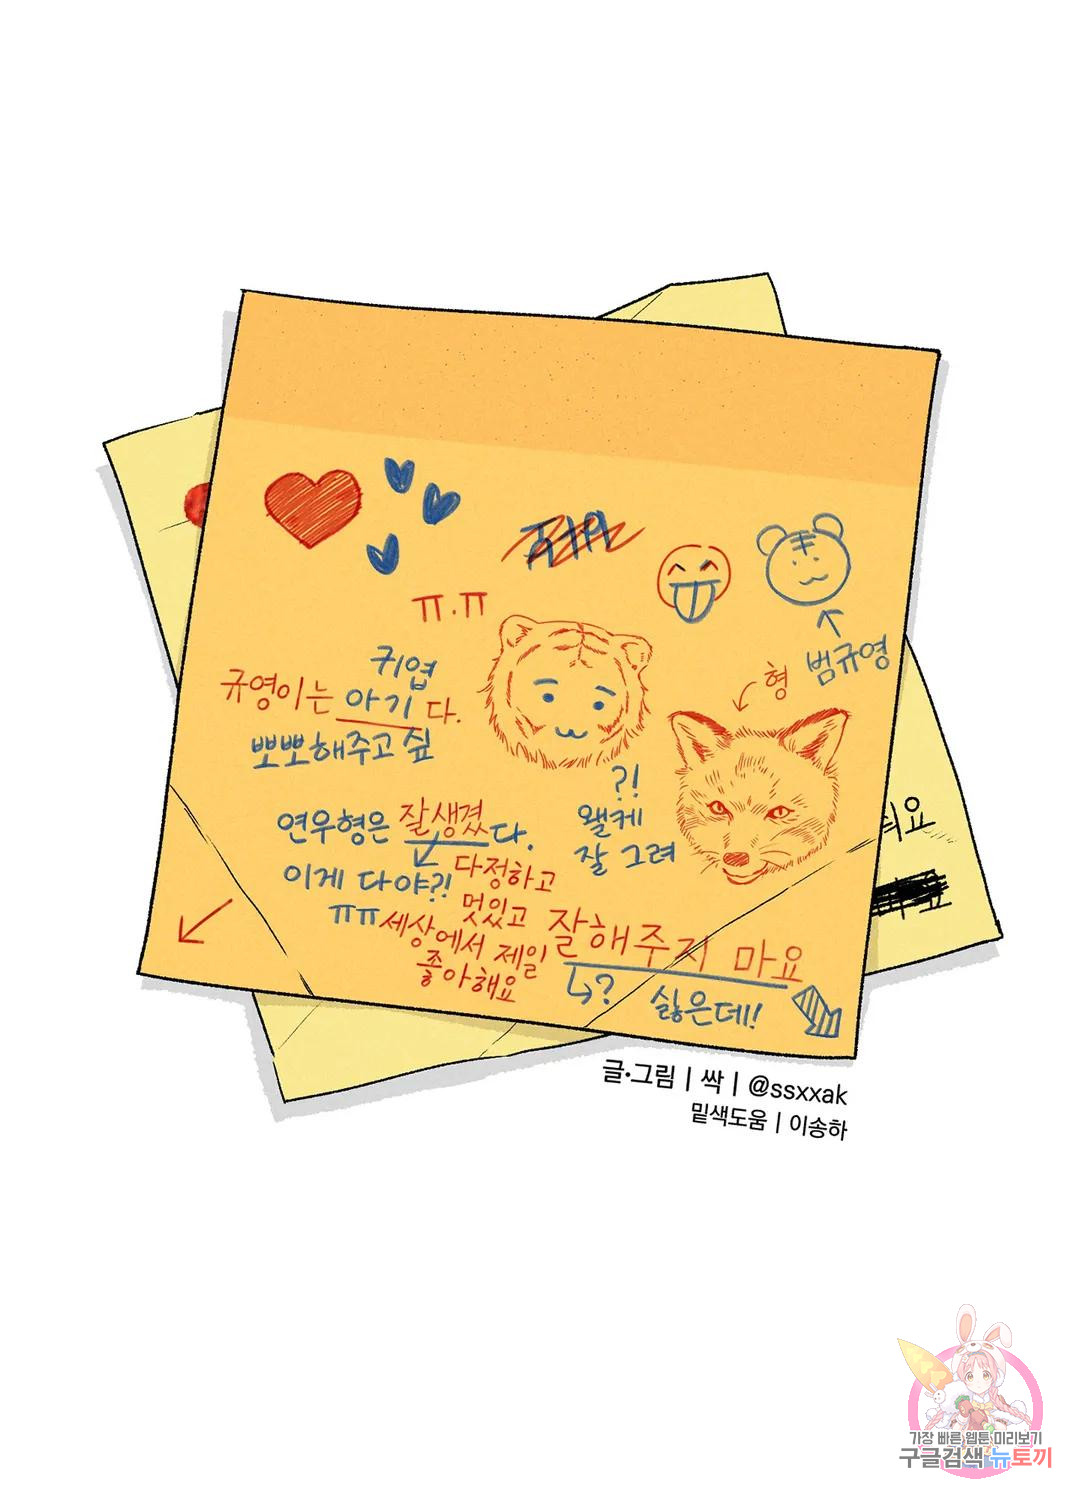 ㅠ.ㅠ
귀엽
규영이는 아기다.
뽀뽀해주고 싶
형
범규영
?!
왤케
잘 그려
연우형은 잘생겼다.
이게 다야?!
ㅠㅠ
다정하고
멋있고
세상에서 제일
좋아해요
잘해주지 마요
?
싫은데!
쉬요
글·그림 | 싹 | @ssxxak
밑색도움 | 이송하
가장 빠른 웹툰 미리보기
구글검색 뉴토끼